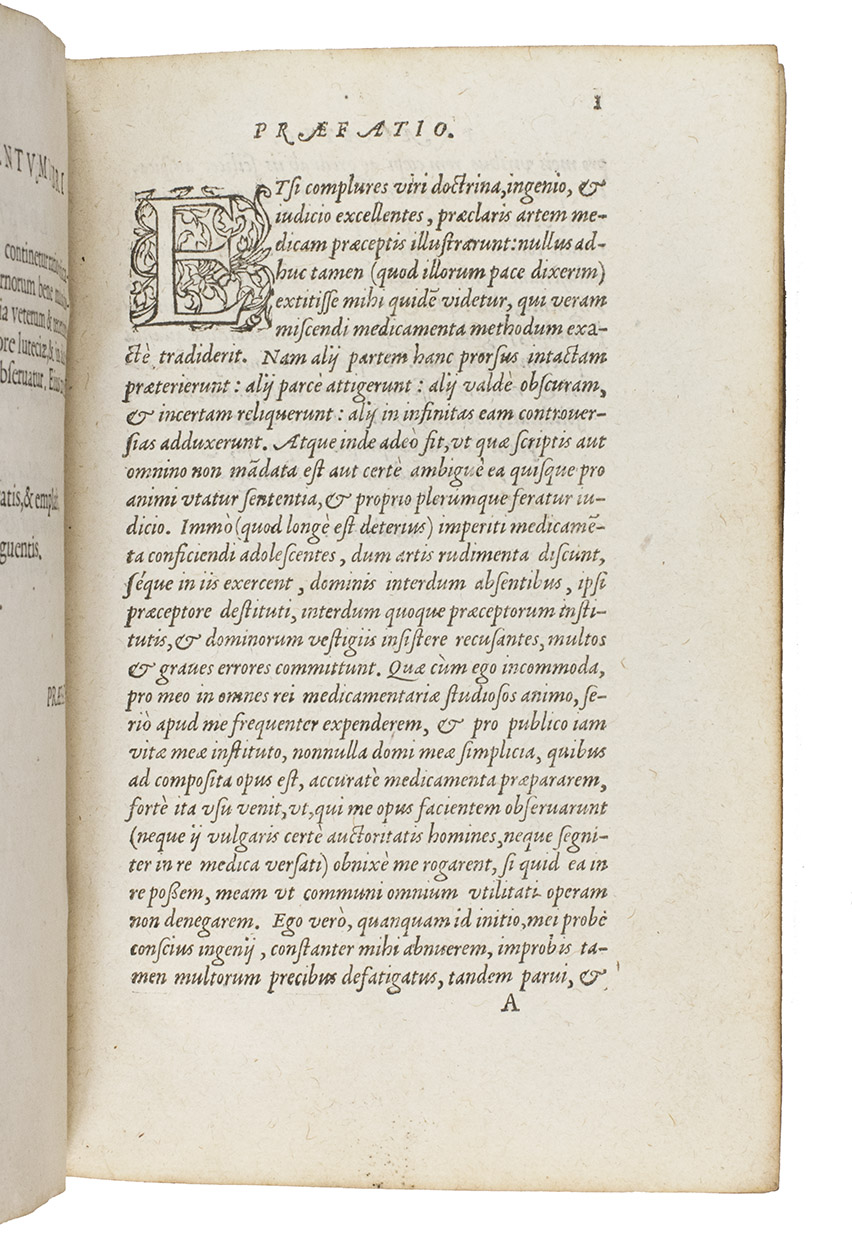 NTVM
continetur
rnorum bene
ia veterum &
ore luteciæ & in
bseruatur,
atis, & empla
guentis.
PRÆ
1
PRÆFATIO.
ETsi complures viri doctrina, ingenio, &
iudicio excellentes, præclaris artem me-
dicam præceptis illustrarunt: nullus ad-
huc tamen (quod illorum pace dixerim)
extitisse mihi quidē videtur, qui veram
miscendi medicamenta methodum exa-
ctè tradiderit. Nam alij partem hanc prorsus intactam
præterierunt: alij parcè attigerunt: alij valdè obscuram,
& incertam reliquerunt: alij in infinitas eam controuer-
sias adduxerunt. Atque inde adeò fit, vt quæ scriptis aut
omnino non mādata est aut certè ambiguè ea quisque pro
animi vtatur sententia, & proprio plerumque feratur iu-
dicio. Immò (quod longè est deterius) imperiti medicamē-
ta conficiendi adolescentes, dum artis rudimenta discunt,
séque in iis exercent, dominis interdum absentibus, ipsi
præceptore destituti, interdum quoque præceptorum insti-
tutis, & dominorum vestigiis insistere recusantes, multos
& graues errores committunt. Quæ cùm ego incommoda,
pro meo in omnes rei medicamentariæ studiosos animo, se-
riò apud me frequenter expenderem, & pro publico iam
vitæ meæ instituto, nonnulla domi meæ simplicia, quibus
ad composita opus est, accuratè medicamenta præpararem,
fortè ita vsu venit, vt, qui me opus facientem obseruarunt
(neque ij vulgaris certè auctoritatis homines, neque segni-
ter in re medica versati) obnixè me rogarent, si quid ea in
re possem, meam vt communi omnium vtilitati operam
non denegarem. Ego verò, quanquam id initio, mei probè
conscius ingenij, constanter mihi abnuerem, improbis ta-
men multorum precibus defatigatus, tandem parui, &
A